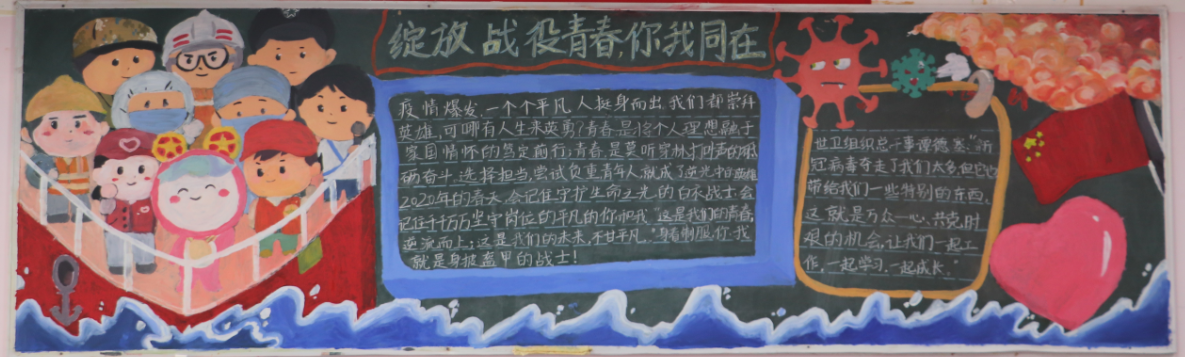 绽放战役青春,你我同在
疫情爆发,一个个平凡人挺身而出,我们都崇拜
英雄,可哪有人生来英勇?青春是将个人理想融于
家国情怀的笃定前行;青春是莫听穿林打叶声的
奋斗,选择担当,尝试负重,青年人就成了逆光中的英雄
2020年的春天,会记住守护生命之光的白衣战士,会
记住千千万万坚守岗位的平凡的你和我."这是我们的青春,
逆流而上;这是我们的未来,不甘平凡."身着制服,你我
就是身披盔甲的战士!
世卫组织总干事谭德塞:"新
冠病毒夺走了我们太多,但它也
带给我们一些特别的东西,
这就是万众一心、共克时
艰的机会,让我们一起工
作,一起学习,一起成长."